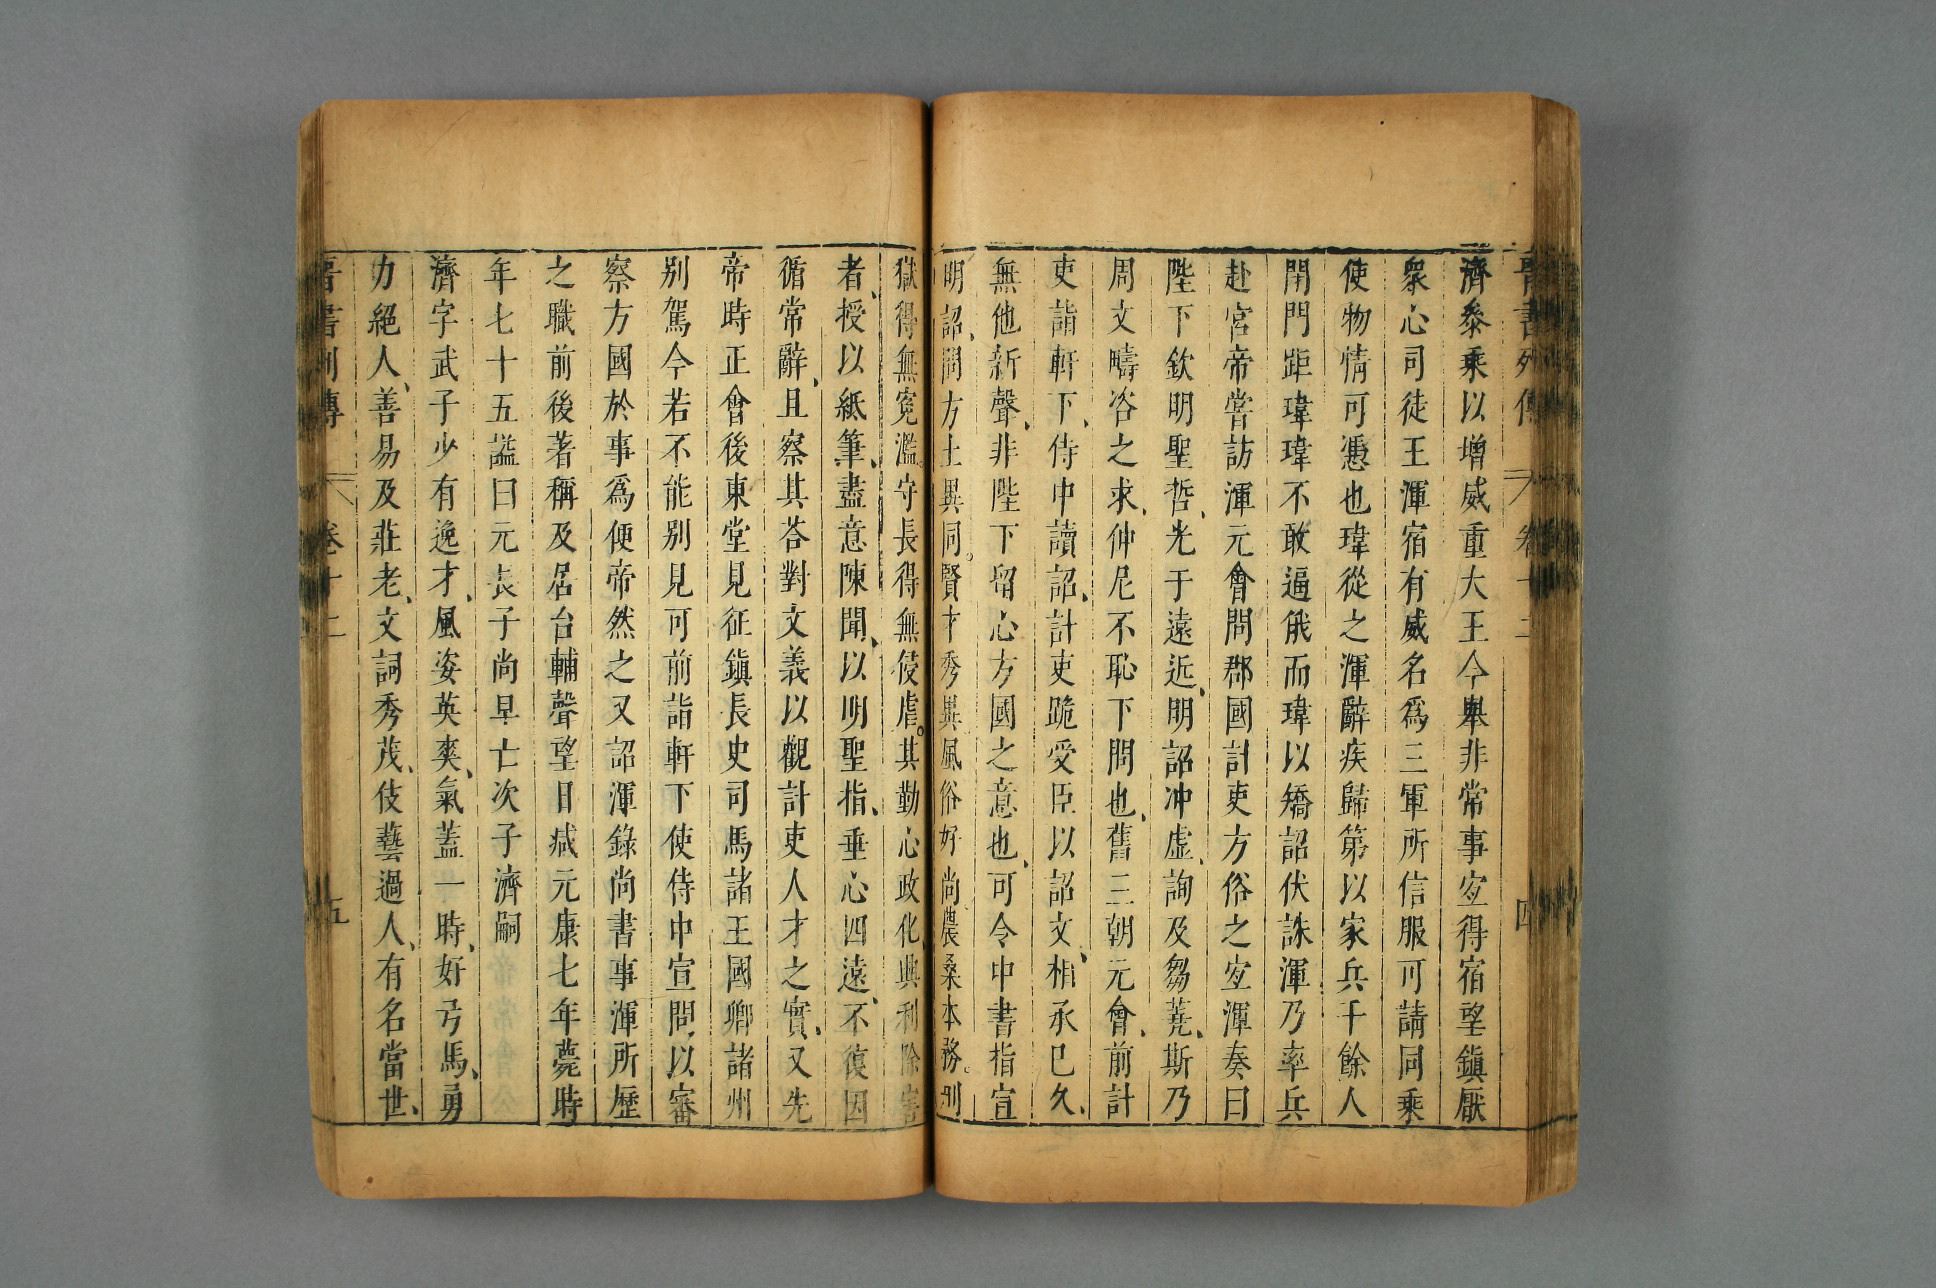 晉書列傳 卷十二 四
濟叅乘以增威重大王今舉非常事宜得宿望鎭厭
衆心司徒王渾宿有威名爲三軍所信服可請同乘
使物情可憑也瑋從之渾辭疾歸第以家兵千餘人
閉門距瑋瑋不敢逼俄而瑋以矯詔伏誅渾乃率兵
赴宮帝嘗訪渾元會問郡國計吏方俗之宜渾奏曰
陛下欽明聖哲、光于遠近、明詔冲虛、詢及芻蕘、斯乃
周文疇咨之求、仲尼不恥下問也、舊三朝元會、前計
吏詣軒下、侍中讀詔、計吏跪受臣以詔文、相承已久、
無他新聲、非陛下留心方國之意也、可令中書指宣
明詔、問方土異同。賢才秀異風俗好尚農桑本務。刑
獄得無寃濫。守長得無侵虐。其勤心政化、興利除害
者、授以紙筆、盡意陳聞、以明聖指、垂心四遠、不復因
循常辭、且察其荅對文義以觀計吏人才之實、又先
帝時正會後東堂見征鎭長史司馬諸王國卿諸州
别駕今若不能别見可前詣軒下使侍中宣問、以審
察方國於事爲便帝然之又詔渾錄尚書事渾所歷
之職前後著稱及居台輔聲望日減元康七年薨時
年七十五謚曰元長子尚早亡次子濟嗣
濟字武子少有逸才、風姿英爽、氣蓋一時、好弓馬、勇
力絕人、善易及莊老、文詞秀茂、伎藝過人、有名當世、
晉書列傳 卷十二 五